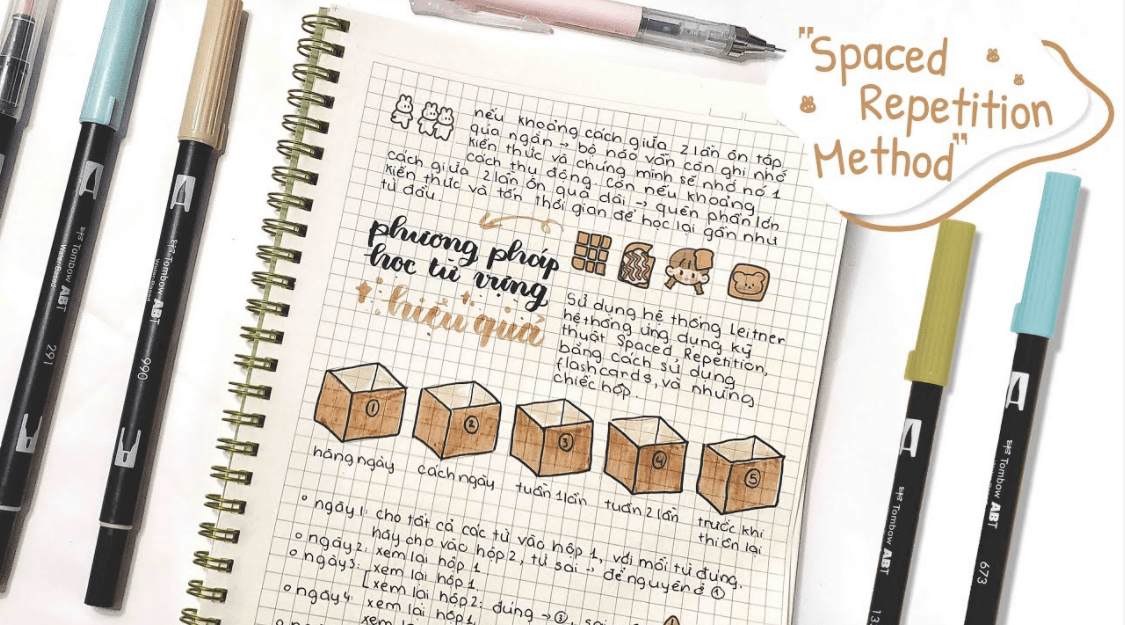 "Spaced
Repetition
Method"
nếu khoảng cách giữa 2 lần ôn tập
quá ngắn → bộ não vẫn còn ghi nhớ
kiến thức và chúng mình sẽ nhớ nó 1
cách thụ động còn nếu khoảng
cách giữa 2 lần ôn quá dài → quên phần lớn
kiến thức và tốn thời gian để học lại gần như
từ đầu.
phương pháp
học từ vựng
hiệu quả
Sử dụng hệ thống Leitner
hệ thống ứng dụng kỹ
thuật Spaced Repetition,
bằng cách sử dụng
flashcards, và những
chiếc hộp.
1
2
3
4
5
hàng ngày
cách ngày
tuần 1 lần
tuần 2 lần
trước khi
thi ôn lại
ngày 1: cho tất cả các từ vào hộp 1, với mỗi từ đúng,
hãy cho vào hộp 2, từ sai → để nguyên ở 1
ngày 2: xem lại hộp 1
ngày 3: xem lại hộp 1
xem lại hộp 2: đúng → 3, sai
ngày 4: xem lại hộp 1
ngày 5: xem
Tombow ABT
291
Tombow ABT
990
Tombow ABT
Tombow ABT
673